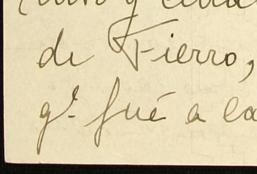 de Fierro,
q.e fué a la